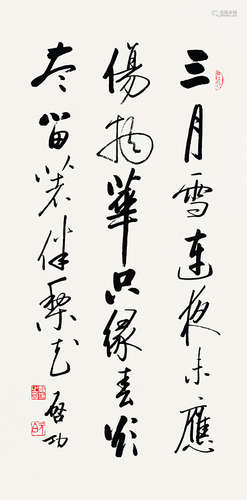 三月雪連夜未應
傷物華只緣春欲
盡留著伴梨花 啓功